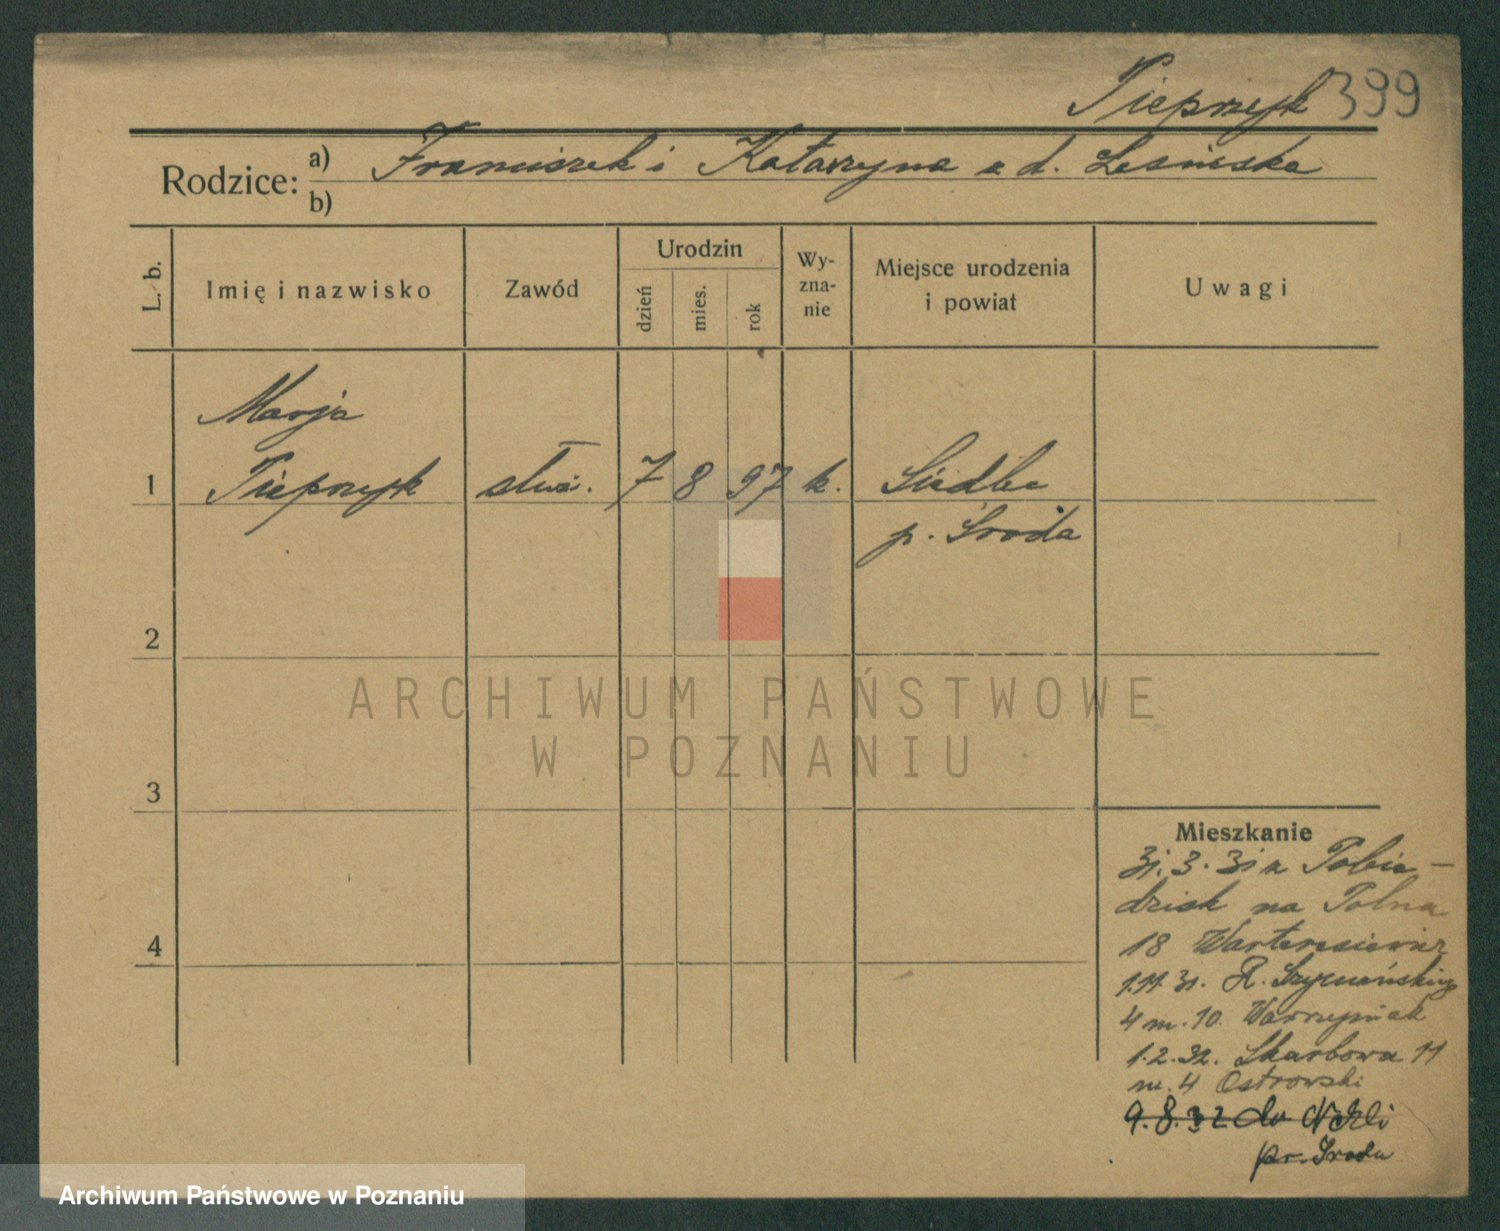 Pieprzyk 399
Rodzice: a) Franciszek i Katarzyna z d. Lesińska
b)
L. b. Imię i nazwisko Zawód Urodzin dzień mies. rok Wy-zna-nie Miejsce urodzenia i powiat Uwagi
Marja
1 Pieprzyk służ. 7 8 97 k. Siedlec
p. Środa
2
ARCHIWUM PAŃSTWOWE
W POZNANIU
3
Mieszkanie
31.3.31 z Pobie-
dzisk na Polna
4 18
1.11.31. Szymańskiego
4 m. 10.
1.2.32. Skarbowa 11
m. 4 Ostrowski
9.8.32 do Nekli
pw. Środa
Archiwum Państwowe w Poznaniu